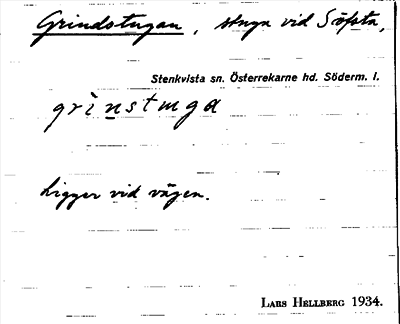 Grindstugan, stuga vid Söfsta,
Stenkvista sn. Österrekarne hd. Söderm. l.
grìnstuga
Ligger vid vägen.
LARS HELLBERG 1934.